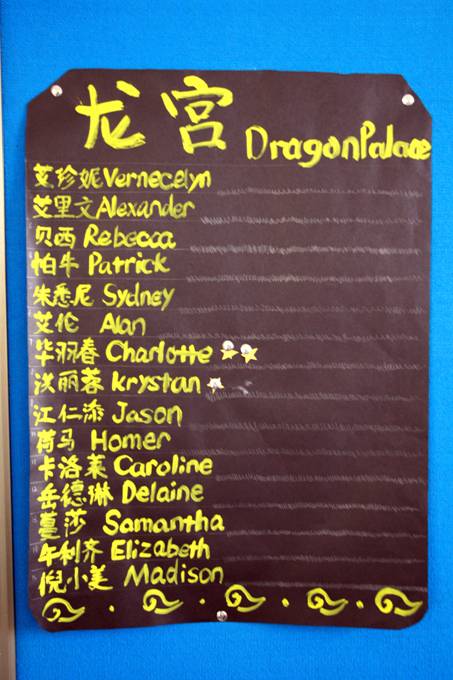 龙宫 DragonPalace
艾珍妮 Vernecelyn
艾里文 Alexander
贝西 Rebecca
帕牛 Patrick
朱悉尼 Sydney
艾伦 Alan
毕羽春 Charlotte
洪丽蓉 krystan
江仁添 Jason
荷马 Homer
卡洛莱 Caroline
岳德琳 Delaine
蔓莎 Samantha
午利齐 Elizabeth
倪小美 Madison